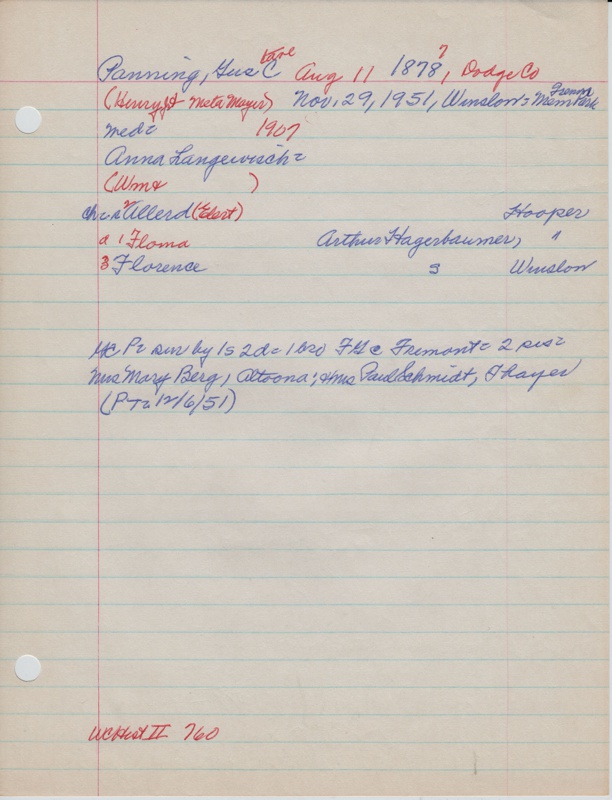 Panning, Gus C tave Aug 11 1878 7, Dodge Co
(Henry & Meta Mayer) Nov. 29, 1951, Winslow = Mem Park
med = 1907
Anna Langewisch =
(Wm & )
ch = s 2 Allerd (Ebert) Hooper
d 1 Floma Arthur Hagerbaumer, "
3 Florence s Winslow
GC P = sur by 1s 2d = 1 bro F G c Fremont = 2 sis =
Mrs Mary Berg, Altoona; + Mrs Paul Schmidt, Thayer
(PT = 12/6/51)
WC Hist II 760